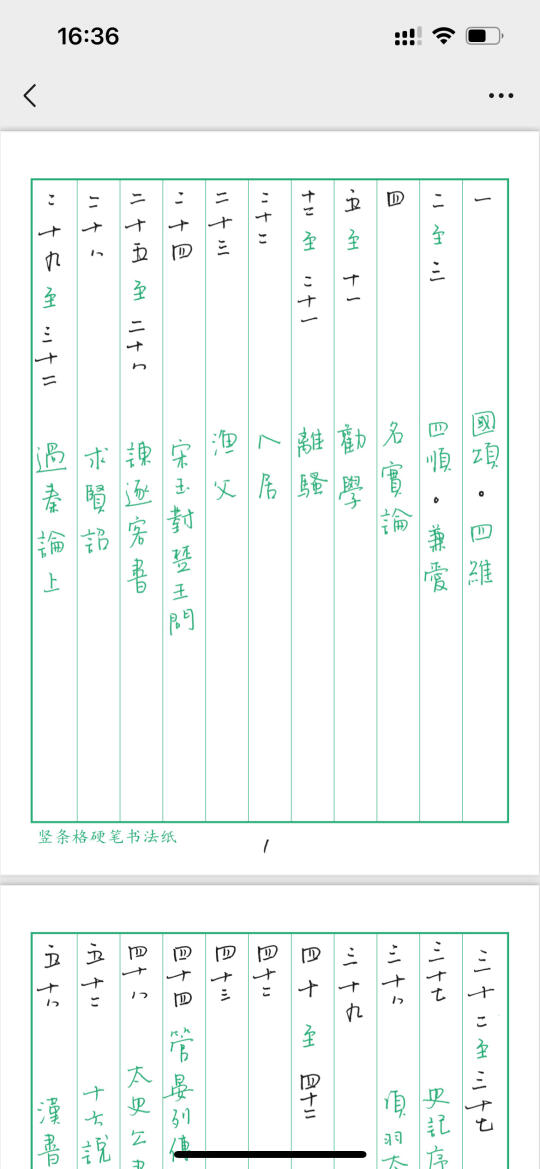 16:36
一 國頌。四維
二至三 四順。兼愛
四 名實論
五至十一 勸學
十二至二十一 離騷
二十二 卜居
二十三 漁父
二十四 宋玉對楚王問
二十五至二十八 諫逐客書
二十八 求賢詔
二十九至三十二 過秦論上
竖条格硬笔书法纸
1
三十二至三十七
三十七 史記序
三十八 項羽本
三十九
四十至四十二
四十二
四十三
四十四 管晏列傳
四十八 太史公
五十二 十七說
五十八 漢書